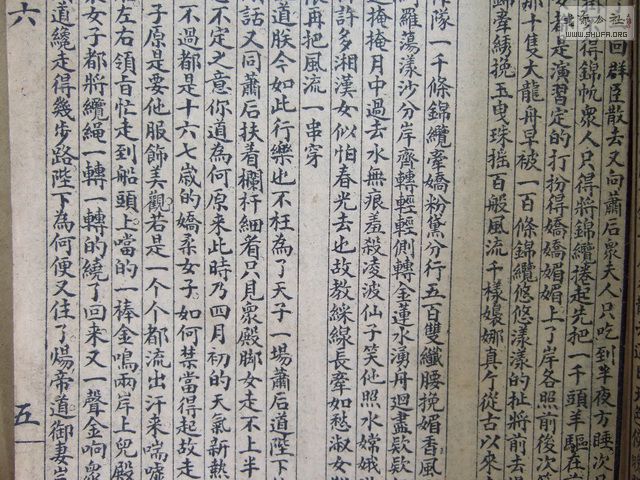 回群臣散去又向蕭后衆夫人只吃到半夜方睡次日
得錦帆衆人只得將錦纜捲起先把一千頭羊驅在
女都是演習定的打扮得嬌嬌媚媚上了岸各照前後次
那十隻大龍舟早被一百條錦纜悠悠漾漾的扯將前去
歸牽綉挽玉曳珠搖百般風流千樣嬝娜真个從古以來
隊一千條錦纜牽嬌粉黛分行五百雙纖腰挽媚香風
羅蕩漾沙分岸齊轉輕輕側轉金蓮水湧舟迴盡欵欵
掩月中過去水無痕羞殺凌波仙子笑他照水嫦娥
許多湘漢女似怕春光去也故教綵線長牽如愁淑女
再把風流一串穿
道朕今如此行樂也不枉為了天子一場蕭后道陛下
話又同蕭后扶着欄杆細看只見衆殿脚女走不上半
不定之意你道為何原來此時乃四月初的天氣新熱
不過都是十六七歲的嬌柔女子如何禁當得起故走
子原是要他服飾美觀若是一个个都流出汗來喘噓
左右領旨忙走到船頭上噹的一棒金鳴兩岸上兜殿
女子都將纜繩一轉一轉的繞了回來又一聲金响衆
道纔走得幾步路陛下為何便又住了煬帝道御妻
六
五
WWW.SHUFA.ORG